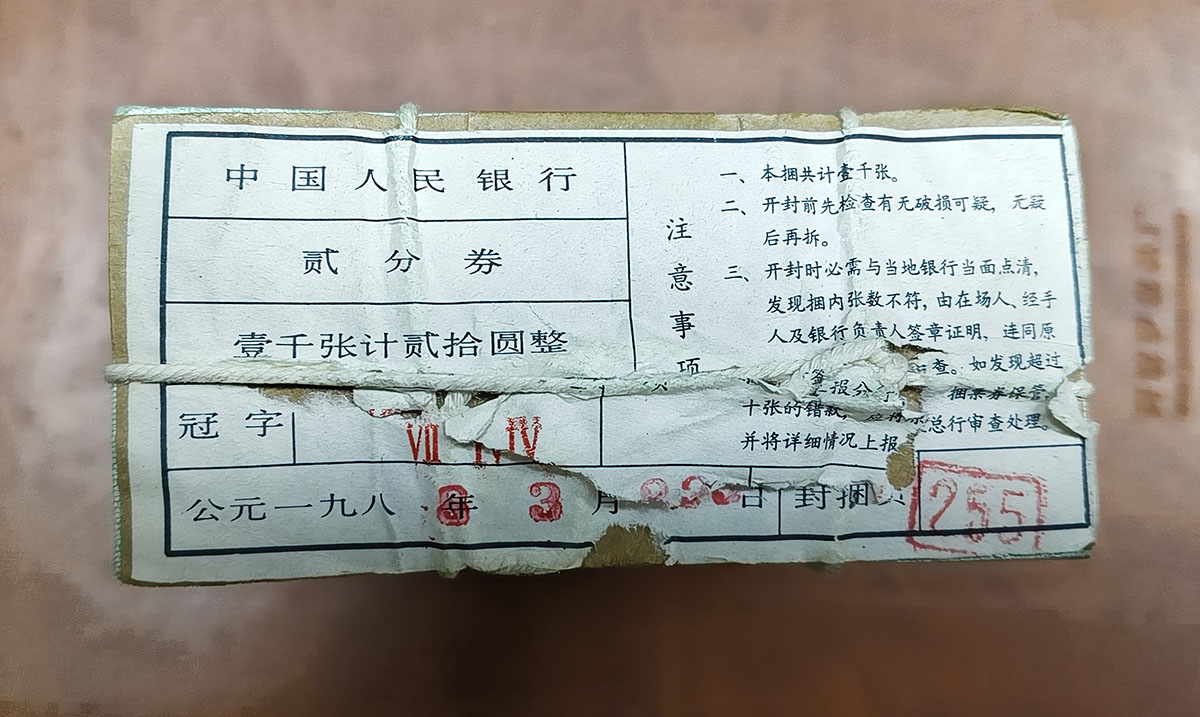 中国人民银行
贰分券
壹千张计贰拾圆整
冠字
VII IV IV
公元一九八8年3月 日
封捆员
255
注意事项
一、本捆共计壹千张。
二、开封前先检查有无破损可疑，无疑
后再拆。
三、开封时必需与当地银行当面点清，
发现捆内张数不符，由在场人、经手
人及银行负责人签章证明，连同原
查。如发现超过
十张的错款，
捆票券保管，
并将详细情况上报
总行审查处理。